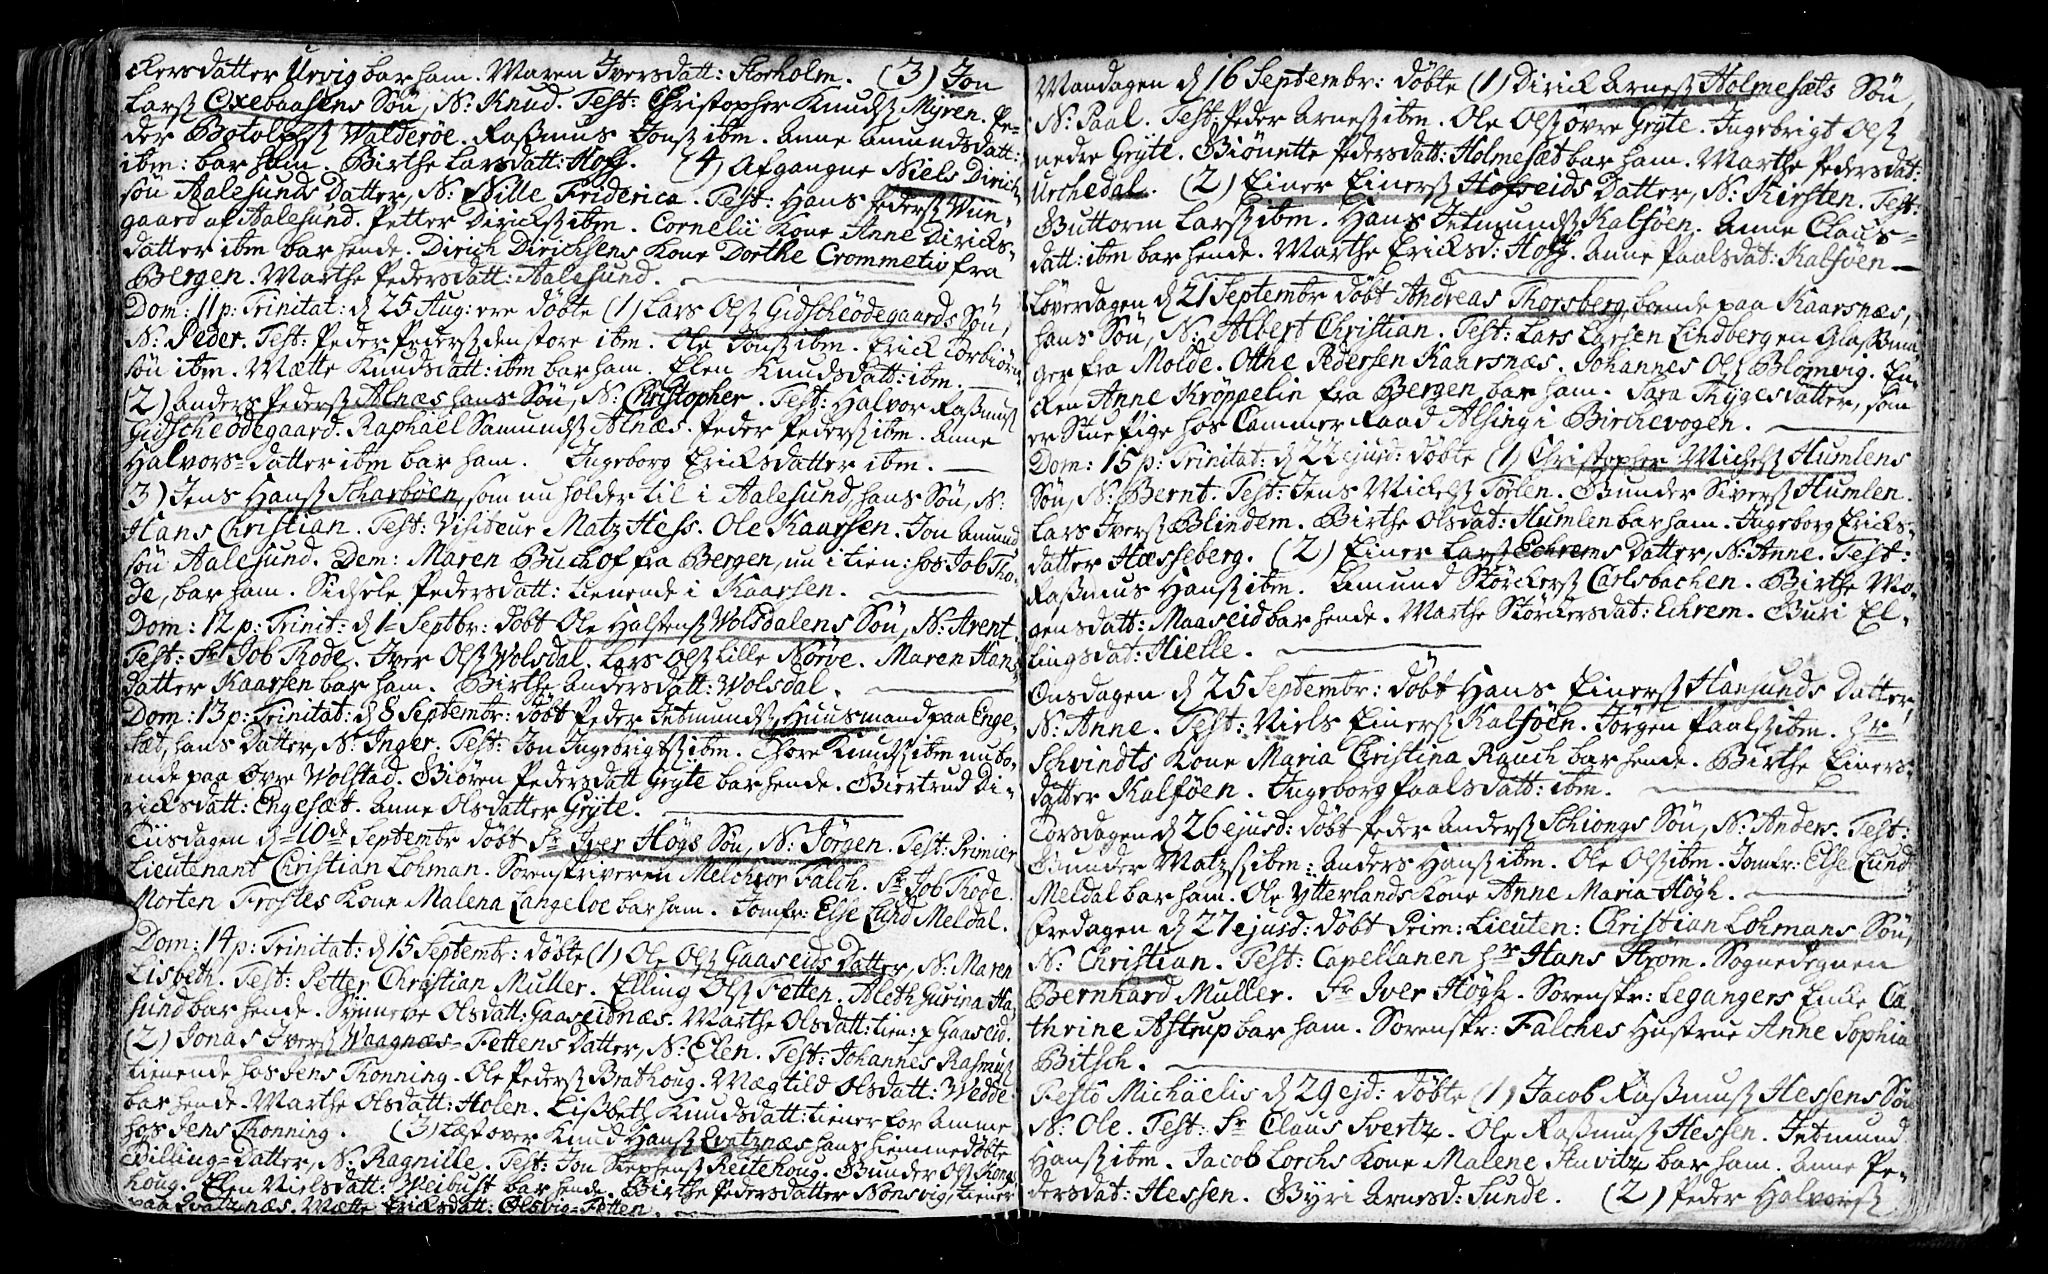 ckersdatter Urvig bar ham. Maren Iversdatt: Storholm. (3) Jon
Larsß Oxebaasens Sön, N: Knud. Test: Christopher Knudsß Myren. Pe-
der Botolphsß Walderöe. Rasmus Jonsß ibm. Anne Amundsdatt:
ibm: bar ham. Birthe Larsdatt: Hoff. (4) Afgangne Niels Dirich-
sön Aalesunds Datter, N: Nille Friderica. Test: Hans Pedersß Win-
gaard af Aalesund. Petter Dericksß ibm. Cornelii Kone Anne Diricks-
datter ibm bar hende. Dirich Dirichsens Kone Dorthe Crommetiv fra
Bergen. Marthe Pedersdatt: Aalesund.
Dom: 11 p: Trinitat: d 25 Aug: ere döbte (1) Lars Olsß Gidscheödegaards Sön,
N: Peder. Test: Peder Pedersß den store ibm. Ole Jonsß ibm. Erick Torbiörn-
sön ibm. Mætte Knudsdatt: ibm bar ham. Elen Knudsdatt: ibm.
(2) Anders Pedersß Alnæs hans Sön, N: Christopher. Test: Halvor Rasmusß
Gidscheödegaard. Raphäel Samundsß Alnæs. Peder Pedersß ibm. Anne
Halvors-datter ibm bar ham. Ingeborg Ericksdatter ibm.
(3) Jens Hansß Scharböen, som nu holder til i Aalesund, hans Sön, N:
Hans Christian. Test: Visiteur Matz Hess. Ole Kaarsen. Jon Amund-
sön Aalesund. Dem: Maren Buchof fra Bergen, nu i tien: hos Job Tho-
de, bar ham. Sidsele Pedersdatt: tienende i Kaarsen.
Dom: 12 p: Trinit: d 1 Septbr: döbt Ole Halstensß Wolsdalens Sön, N: Arent.
Test: Sr Job Thode. Iver Olsß Wolsdal. Lars Olsß Lille Nörve. Maren Hans-
datter Kaarsen bar ham. Birthe Andersdatt: Wolsdal.
Dom: 13 p: Trinitat: d 8 Septembr: döbt Peder Jetmundsß, Huusmand paa Enge-
sæt, hans Datter, N: Inger. Test: Jon Ingebrigtsß ibm. Thore Knudsß ibm nu bo-
ende paa Övre Wolstad. Biören Pedersdatt Gryte bar hende. Biertrud Di-
ricksdatt: Engesæt. Anne Olsdatter Gryte.
Tiisdagen d 10de Septembr döbt Sr Iver Högs Sön, N: Jörgen. Test: Primier
Lieutenant Christian Lohman. Sorenskriveren Melchior Falch. Sr Job Thode.
Morten Frostes Kone Malena Langeloe bar ham. Jomfr: Else Lund Meldal.
Dom: 14 p: Trinitat: d 15 Septembr: döbte (1) Ole Olsß Gaaseids Datter, N: Maren
Lisbeth. Test: Setter Christian Muller. Elling Olsß Fetten. Aleth Gurina Ha-
sund bar hende. Synneve Olsdatt: Gaaseidnæs. Marthe Olsdatt: tien: p Gaaseid.
(2) Jonas Iversß Waagnæs-Fettens Datter, N: Elen. Test: Johannes Rasmusß
tienende hos Jens Thonning. Ole Pedersß Brathoug. Mægtild Olsdatt: Wedde
bar hende. Marthe Olsdatt: Holen. Lisbeth Knudsdatt: tiener for Amme
hos Jens Thonning. (3) Læst over Knud Hansß Qvatznæs hans hiemmedöbte
Tvilling-datter, N: Ragnille. Test: Jon Stephensß Reitehoug. Gunder Olsß Kong-
houg. Elen Nielsdatt: Weibust bar hende. Birthe Pedersdatter Nörsvig, tiener
paa Qvatznæs. Mætte Ericksdatt: Olsvig-Fetten.
Mandagen d 16 Septembr: döbte (1) Dirick Arnesß Holmesæts Sön,
N: Paal. Test: Peder Arnesß ibm. Ole Olsß övre Gryte. Ingebrigt Olsß
nedre Gryte. Biönette Pedersdatt: Holmesæt bar ham. Marthe Pedersdat:
Urchedal. (2) Einer Einersß Hofseids Datter, N: Kirsten. Test:
Guttorm Larsß ibm. Hans Jetmundsß Kalföen. Anne Claus-
datt: ibm bar hende. Marthe Ericksd: Hoff. Anne Paalsdat: Kalföen
Löverdagen d 21 Septembr döbt Andreas Thorsberg, boende paa Kaarsnæs,
hans Sön, N: Albert Christian. Test: Lars Larsen Lindberg en Glassma-
ger fra Molde. Otthe Pedersen Kaarsnæs. Johannes Olsß Blomvig. En-
cken Anne Kröppelin fra Bergen bar ham. Sara Thygesdatter, som
er Stue Pige hos Cammer Raad Alsing i Birchevogen.
Dom: 15 p: Trinitat: d 22 ejusd: döbte (1) Christopher Michelsß Humlens
Sön, N: Bernt. Test: Jens Mickelsß Törlen. Gunder Siversß Humlen.
Lars Iversß Blindem. Birthe Olsdat: Humlen bar ham. Ingeborg Ericks-
datter Hæsseberg. (2) Einer Larsß Echrems Datter, N: Anne. Test:
Rasmus Hansß ibm. Amund Störckersß Carlsbachen. Birthe Mo-
gensdatt: Maaseid bar hende. Marthe Störckersdat: Echrem. Guri El-
lingsdat: Hielle.
Onsdagen d 25 Septembr: döbt Hans Einersß Hansunds Datter,
N: Anne. Test: Niels Einersß Kalföen. Jörgen Paalsß ibm. Hr
Schvindts Kone Maria Christina Rauch bar hende. Birthe Einers-
datter Kalföen. Ingeborg Paalsdatt: ibm.
Torsdagen d 26 ejusd: döbt Peder Andersß Schiongs Sön, N: Anders. Test:
Gunder Matzsß ibm: Anders Hansß ibm. Ole Olsß ibm. Jomfr: Else Lund
Meldal bar ham. Ole Ytterlands Kone Anne Maria Högh.
Fredagen d 27 ejusd: döbt Prim: Lieuten: Christian Lohmans Sön,
N: Christian. Test: Capellanen Hr Hans Ström. Sognedegnen
Bernhard Muller. Sr Iver Högh. Sorenskr: Legangers Encke Ca-
thrine Astrup bar ham. Sorenskr: Falches Hustrue Anne Sophia
Bitsch.
Festo Michäelis d 29 ejd: döbte (1) Jacob Rasmusß Hessens Sön
N: Ole. Test: Sr Claus Svertz. Ole Rasmusß Hessen. Jetmund
Hansß ibm. Jacob Lorchs Kone Malene Anvitz bar ham. Anne Pe-
dersdat: Hessen. Gyri Arnesd: Sunde. (2) Peder Halvorsß